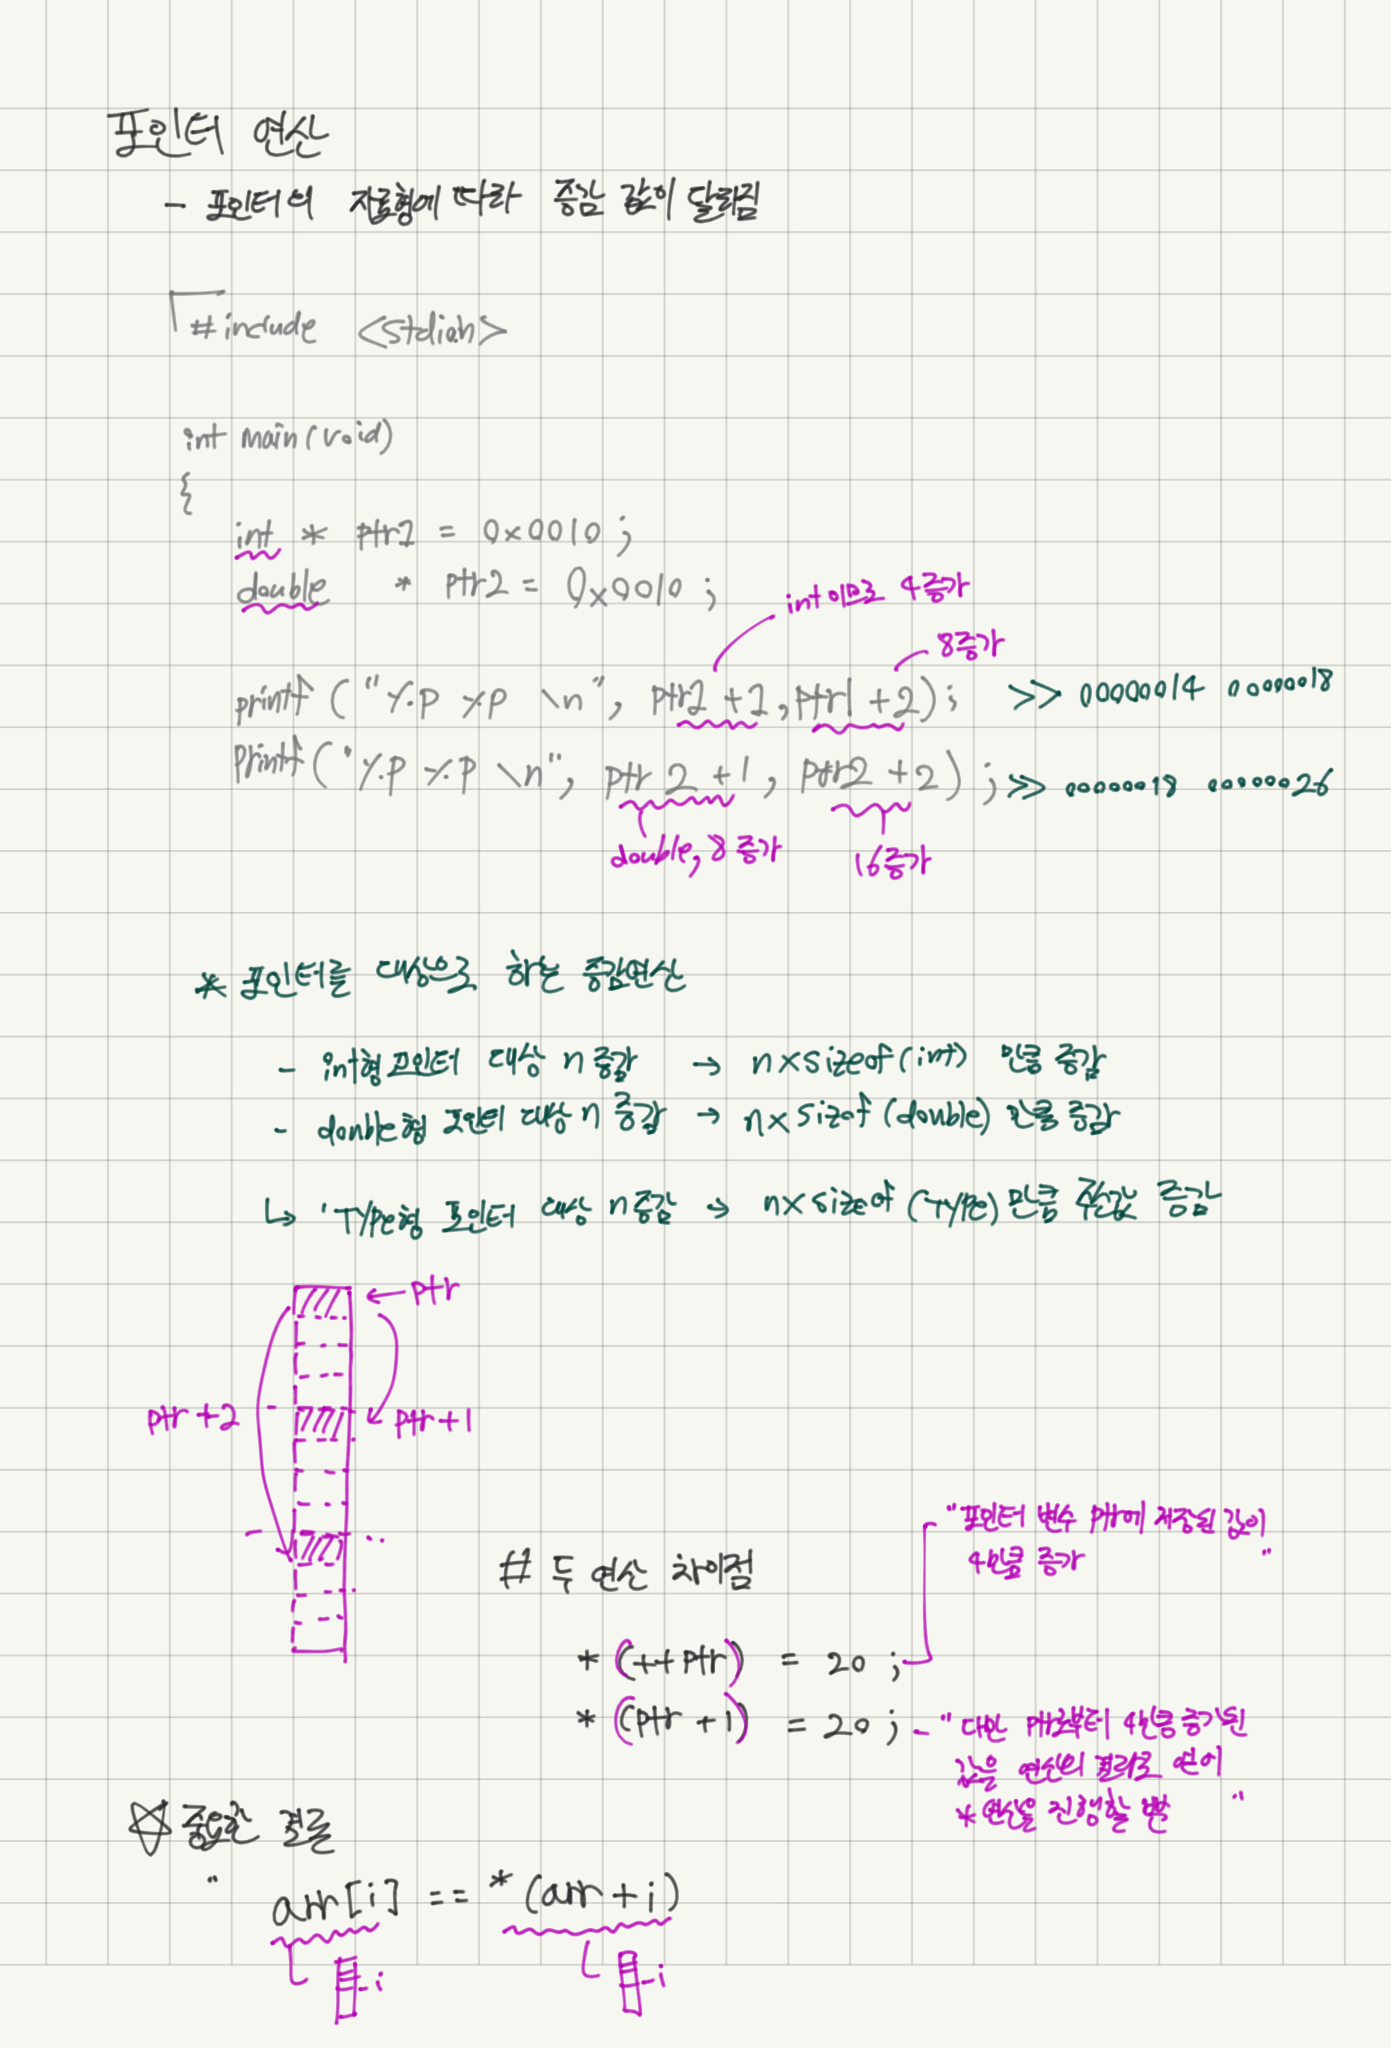 포인터 연산
- 포인터의 자료형에 따라 증감 값이 달라짐
#include <stdio.h>
int main(void)
{
int * ptr1 = 0x0010;
double * ptr2 = 0x0010;
int이므로 4증가
8증가
printf("%p %p \n", ptr2+2, ptr1+2); >> 00000014 00000018
printf("%p %p \n", ptr2+1, ptr2+2); >> 00000018 00000026
double, 8증가 16증가
* 포인터를 대상으로 하는 증감연산
- int형 포인터 대상 n증감 → n×sizeof(int) 만큼 증감
- double형 포인터 대상 n증감 → n×sizof(double) 만큼 증감
↳ 'TYPE형 포인터 대상 n증감 → n×sizeof(TYPE)만큼 주소값 증감
← ptr
ptr+2 ptr+1
"포인터 변수 ptr에 저장된 값이
4만큼 증가 "
# 두 연산 차이점
*(++ptr) = 20;
*(ptr+1) = 20; - "다만 ptr로부터 4만큼 증가된
값을 연산의 결과로 얻어
*연산을 진행할 뿐 "
☆ 중요한 결론
" arr[i] == *(arr+i)
-i -i